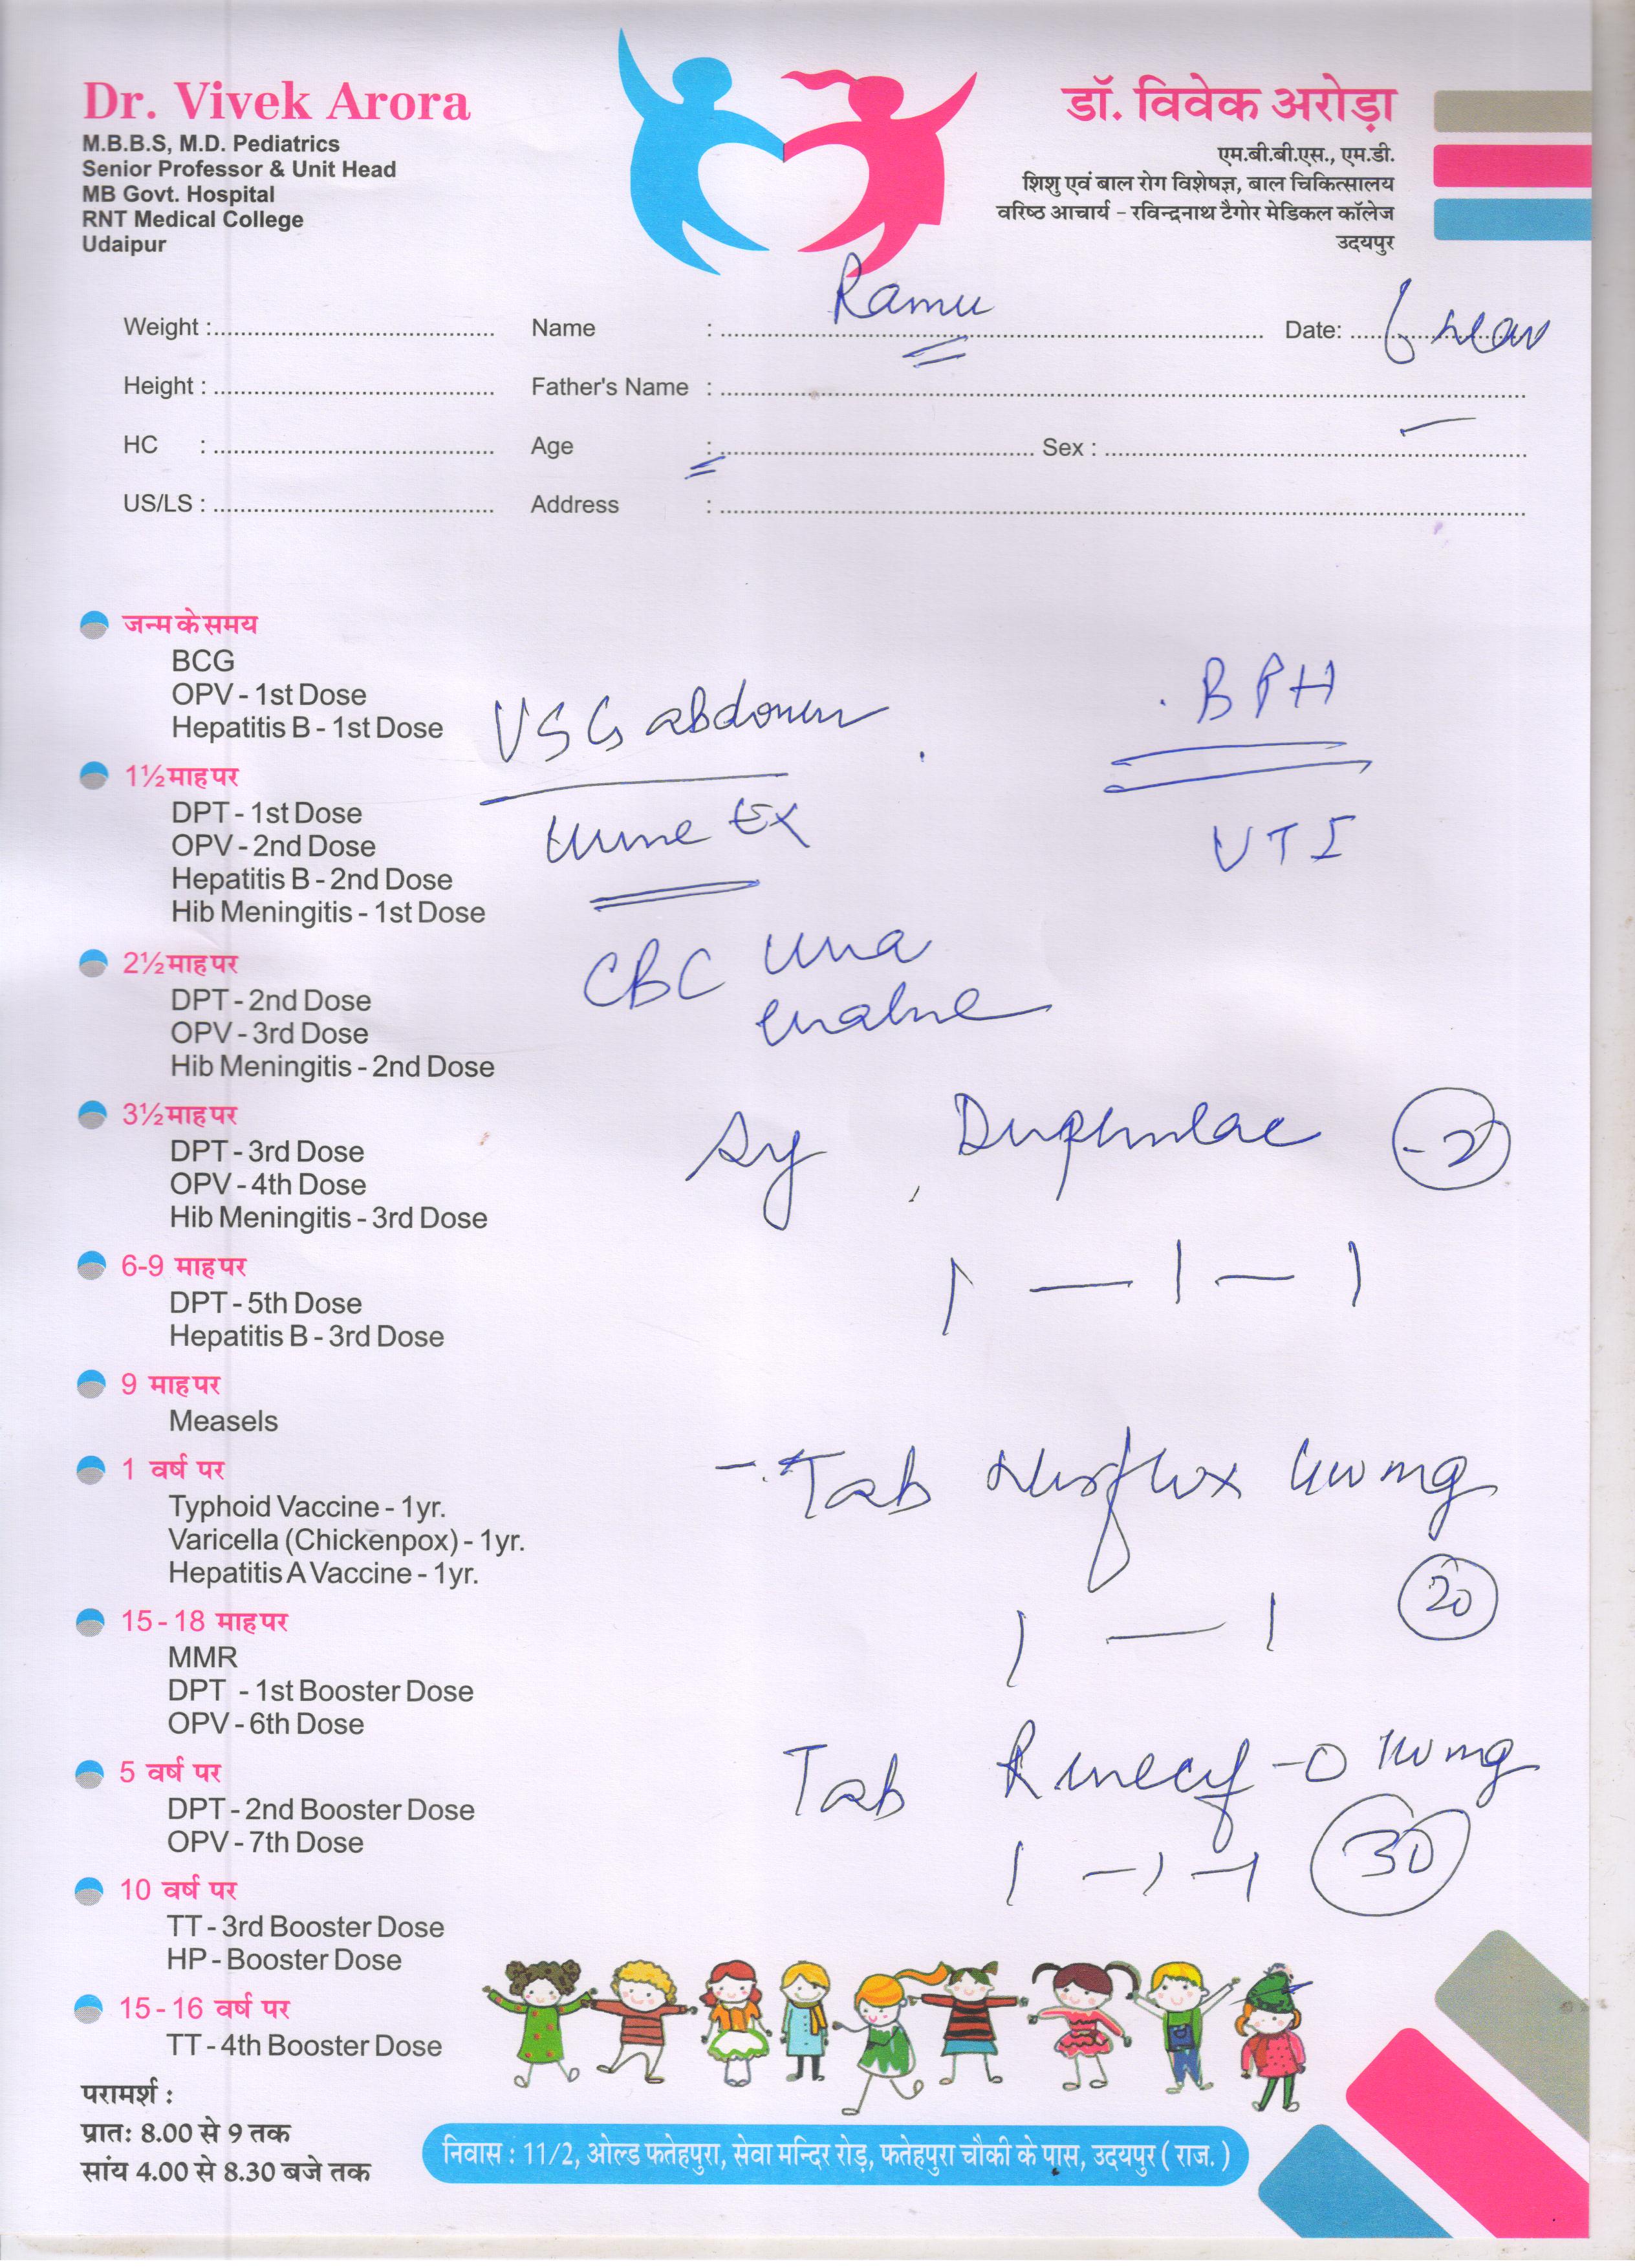 Dr. Vivek Arora
M.B.B.S, M.D. Pediatrics
Senior Professor & Unit Head
MB Govt. Hospital
RNT Medical College
Udaipur
डॉ. विवेक अरोड़ा
एम.बी.बी.एस., एम.डी.
शिशु एवं बाल रोग विशेषज्ञ, बाल चिकित्सालय
वरिष्ठ आचार्य - रविन्द्रनाथ टैगोर मेडिकल कॉलेज
उदयपुर
Weight : Name : Ramu Date: 6
Height : Father's Name :
HC : Age : Sex :
US/LS : Address :
जन्म के समय
BCG
OPV - 1st Dose
Hepatitis B - 1st Dose
1½ माह पर
DPT - 1st Dose
OPV - 2nd Dose
Hepatitis B - 2nd Dose
Hib Meningitis - 1st Dose
2½ माह पर
DPT - 2nd Dose
OPV - 3rd Dose
Hib Meningitis - 2nd Dose
3½ माह पर
DPT - 3rd Dose
OPV - 4th Dose
Hib Meningitis - 3rd Dose
6-9 माह पर
DPT - 5th Dose
Hepatitis B - 3rd Dose
9 माह पर
Measels
1 वर्ष पर
Typhoid Vaccine - 1yr.
Varicella (Chickenpox) - 1yr.
Hepatitis A Vaccine - 1yr.
15 - 18 माह पर
MMR
DPT - 1st Booster Dose
OPV - 6th Dose
5 वर्ष पर
DPT - 2nd Booster Dose
OPV - 7th Dose
10 वर्ष पर
TT - 3rd Booster Dose
HP - Booster Dose
15 - 16 वर्ष पर
TT - 4th Booster Dose
USG abdomen
Urine Ex
CBC Urea
BPH
UTI
Sy Duphalac - 2
1 — 1 — 1
Tab Norflox 400 mg
1 — 1 20
Tab -O 100 mg
1 - 1 - 1 30
परामर्श :
प्रातः 8.00 से 9 तक
सांय 4.00 से 8.30 बजे तक
निवास : 11/2, ओल्ड फतेहपुरा, सेवा मन्दिर रोड़, फतेहपुरा चौकी के पास, उदयपुर ( राज. )